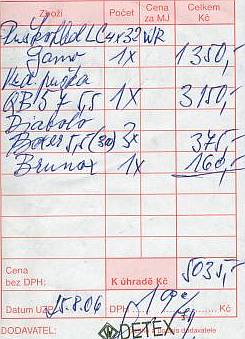 Zboží Počet Cena za MJ Celkem Kč
Puškohled LC4x32WR
Gamo 1x 1350,-
Vzd puška
QB 57 5,5 1x 3150,-
Diabolo
Boxer 5,5 (300) 3x 375,-
Brunox 1x 160,-
Cena bez DPH: K úhradě Kč 5035,-
Datum UZP: 25.8.06 DPH Kč
DODAVATEL: DETEX a podpis dodavatele